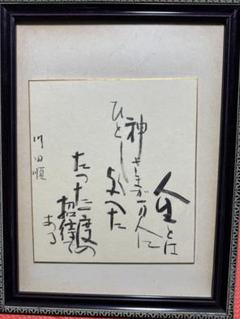 人生とは
神さまが万人に
ひとしく与へた
たった一度の
招待で
ある
川田順